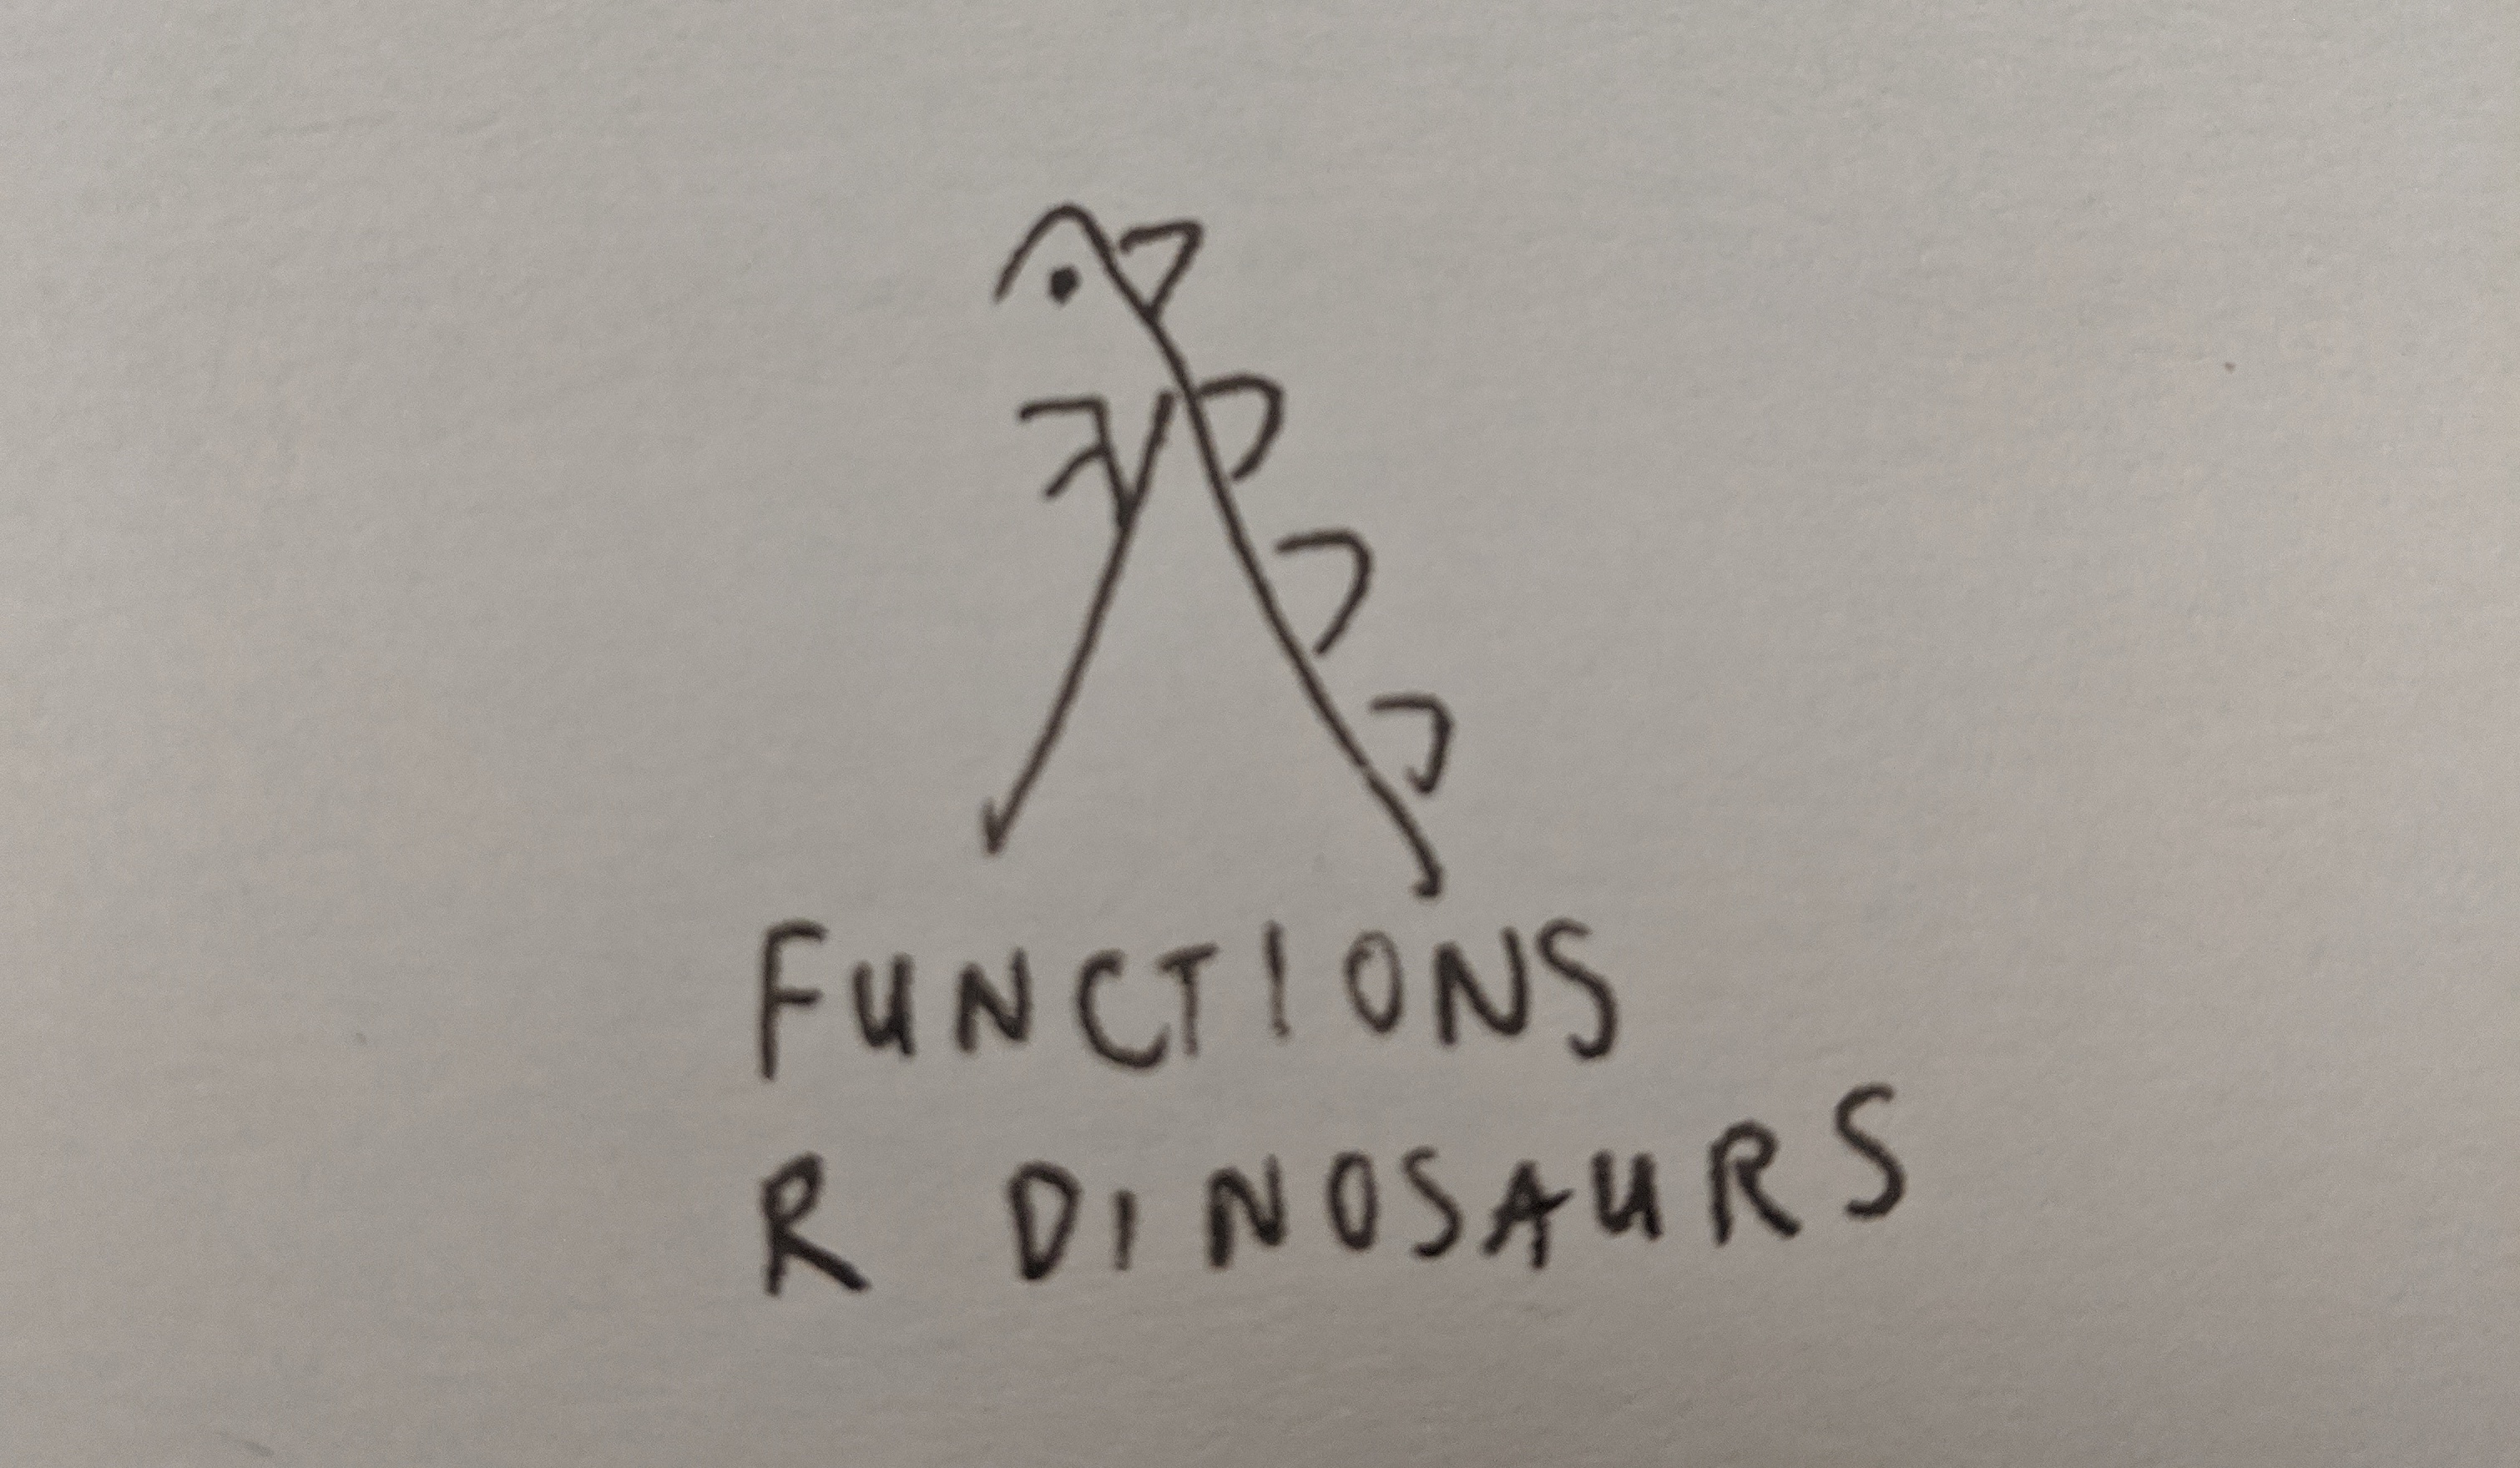 FUNCTIONS
R DINOSAURS